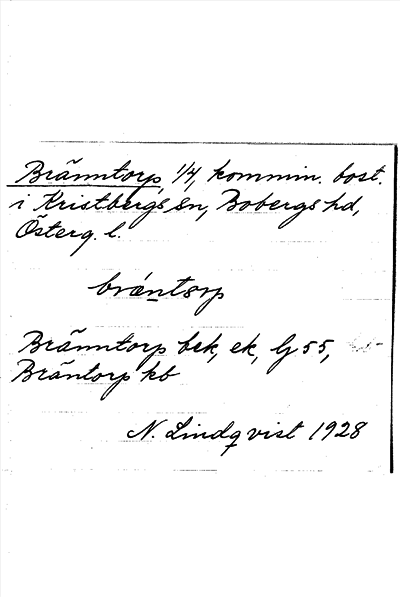 Bränntorp, 1/4, kommin. bost.
i Kristbergs sn, Bobergs hd,
Österg. l.
brǽntorp
Bränntorp bek, ek, Gj 55,
Bräntorp kb
N. Lindqvist 1928